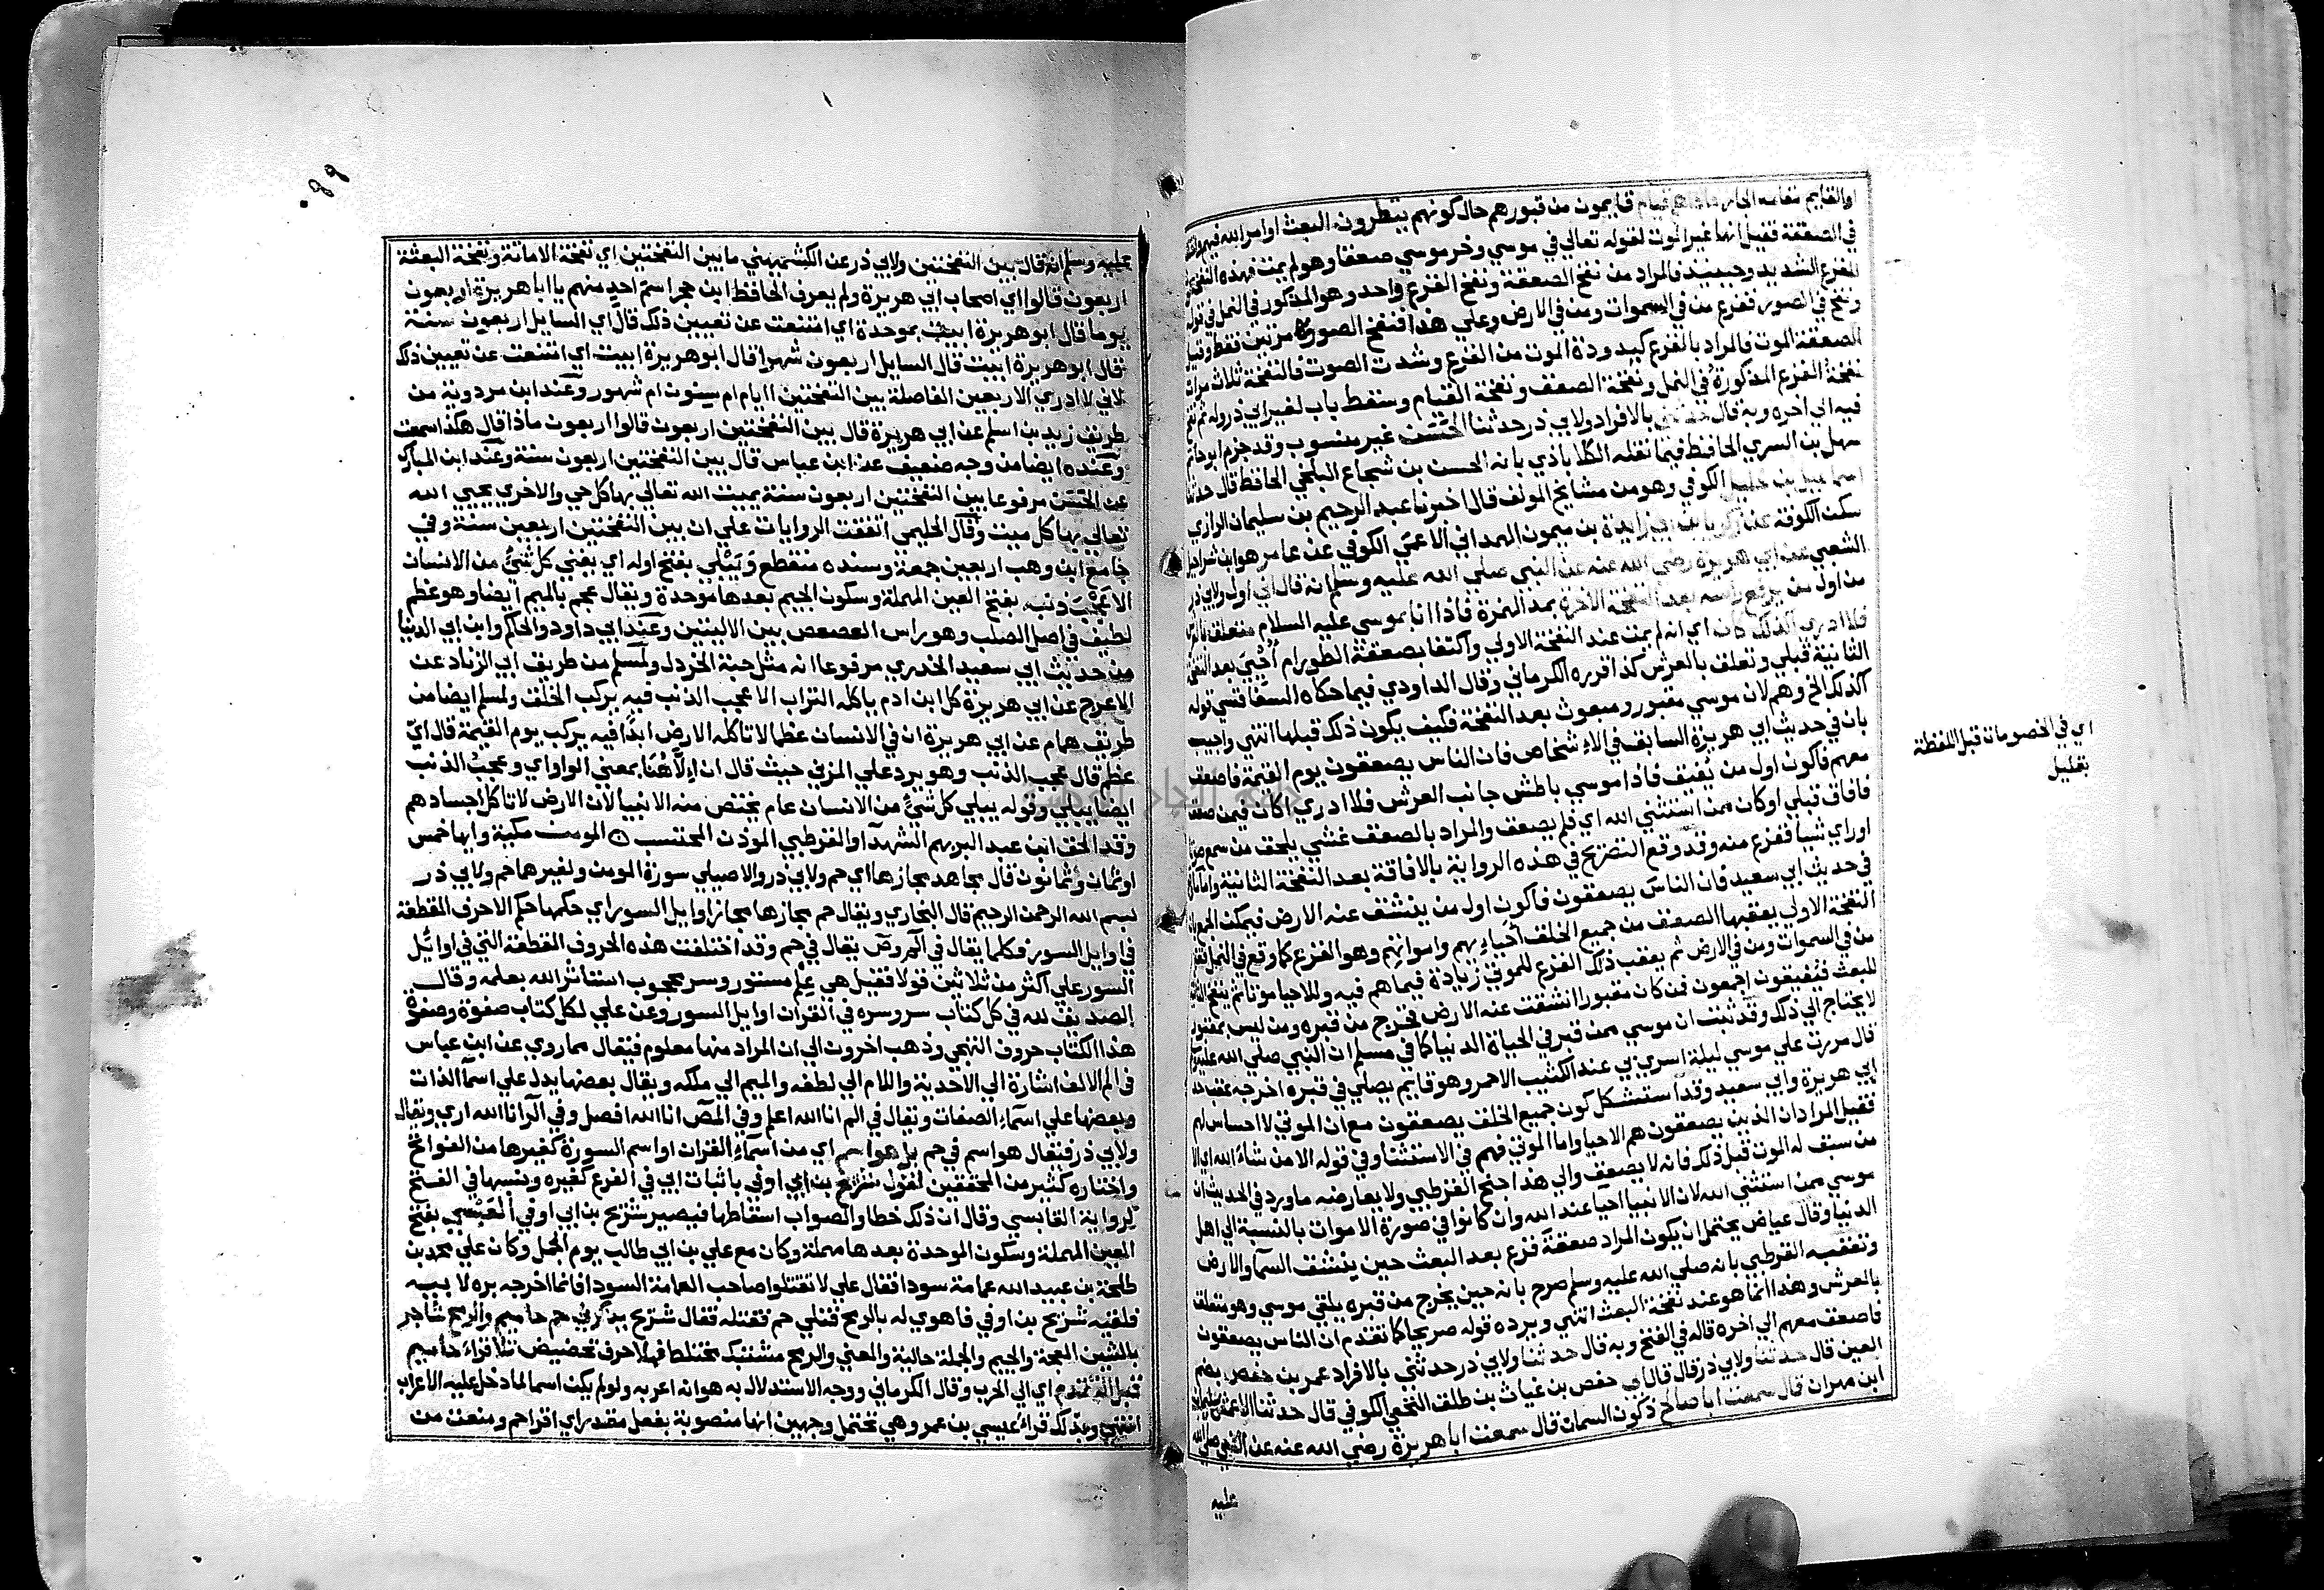 او القايم مقامه الجار فاذا هم قيام قايمون من قبورهم حال كونهم ينظرون البعث او امر الله فيهم
في الصعقة فقيل انها غير الموت لقوله تعالي في موسي وخر موسي صعقا وهو لم يمت فهذه النفخة
الفزع الشديد وحينيذ فالمراد من نفخ الصعقة ونفخ الفزع واحد وهو المذكور في النمل في قوله
ونفخ في الصور ففزع من في السموات ومن في الارض وعلي هذا فنفخ الصور مرتين فقط وقيل
الصعقة الموت فالمراد بالفزع كيدودة الموت من الفزع وشدت الصوت فالنفخة ثلاث مرات
نفخة الفزع المذكورة في النمل ونفخة الصعق ونفخة القيام وسقط باب لغير ابي ذر وله ثم نفخ
فيه الي اخره وبه قال حدثني بالافراد ولابي ذر حدثنا الحسن غير منسوب وقد جزم ابو حاتم
سهل بن السري الحافظ فيما نقله الكلاباذي بانه الحسن بن شجاع البلخي الحافظ قال حدثنا
اسماعيل بن خليل الكوفي وهو من مشايخ المولف قال اخبرنا عبد الرحيم بن سليمان الرازي
سكن الكوفة عن زكريا بن ابي زايدة بن ميمون الهمداني الاعمي الكوفي عن عامر هو ابن شراحيل
الشعبي عن ابي هريرة رضي الله عنه عن النبي صلي الله عليه وسلم انه قال اني اول ولابي ذر
من اول من يرفع راسه بعد النفخة الاخرة بمد الهمزة فاذا انا بموسي عليه السلام متعلق بالعرش
فلا ادري اكذلك كان اي انه لم يمت عند النفخة الاولي واكتفا بصعقة الطور ام احيي بعد النفخة
الثانية قبلي وتعلق بالعرش كذا قرره الكرماني وقال الداودي فيما حكاه السفاقسي قوله
اكذلك الخ وهم لان موسي مقبور ومبعوث بعد النفخة فكيف يكون ذلك قبلها انتهي واجيب
بان في حديث ابي هريرة السابق في الاشخاص فان الناس يصعقون يوم القيمة فاصعق
معهم فاكون اول من يفيق فاذا موسي باطش جانب العرش فلا ادري اكان فيمن صعق
فافاق قبلي او كان ممن استثني الله اي فلم يصعق والمراد بالصعق غشي يلحق من سمع صوتا
او راي شيا ففزع منه وقد وقع التصريح في هذه الرواية بالافاقة بعد النفخة الثانية واما ما
في حديث ابي سعيد فان الناس يصعقون فاكون اول من ينشق عنه الارض فيمكن الجمع بان
النفخة الاولي يعقبها الصعق من جميع الخلق احياءيهم وامواتهم وهو الفزع كما وقع في النمل ففزع
من في السموات ومن في الارض ثم يعقب ذلك الفزع للموتي زيادة فيما هم فيه وللاحيا موتا ثم ينفخ الثانية
للبعث فيفيقون اجمعون فمن كان مقبورا انشقت عنه الارض فخرج من قبره ومن ليس بمقبور
لا يحتاج الي ذلك وقد ثبت ان موسي ممن قبر في الحياة الدنيا كما في مسلم ان النبي صلي الله عليه وسلم
قال مررت علي موسي ليلة اسري بي عند الكثيب الاحمر وهو قايم يصلي في قبره اخرجه عقب حديث
ابي هريرة وابي سعيد وقد استشكل كون جميع الخلق يصعقون مع ان الموتي لا احساس لهم
فقيل المراد ان الذين يصعقون هم الاحيا واما الموتي فهم في الاستثنا وفي قوله الا من شاء الله اي الا
من سبق له الموت قبل ذلك فانه لا يصعق والي هذا جنح القرطبي ولا يعارضه ما ورد في الحديث ان
موسي ممن استثني الله لان الانبيا احيا عند الله وان كانوا في صورة الاموات بالنسبة الي اهل
الدنيا وقال عياض يحتمل ان يكون المراد صعقة فزع بعد البعث حين ينشق السما والارض
وتعقبه القرطبي بانه صلي الله عليه وسلم صرح بانه حين يخرج من قبره يلقي موسي وهو متعلق
بالعرش وهذا انما هو عند نفخة البعث انتهي ويرده قوله صريحا كما تقدم ان الناس يصعقون
فاصعق معهم الي اخره قاله في الفتح وبه قال حدثنا ولابي ذر حدثني بالافراد عمر بن حفص بضم
العين قال حدثنا ولابي ذر قال قال ابي حفص بن غياث بن طلق النخعي الكوفي قال حدثنا الاعمش سليمان
ابن مهران قال سمعت ابا صالح ذكون السمان قال سمعت ابا هريرة رضي الله عنه عن النبي صلي الله
عليه
اي في الخصومات قبل اللفظة
بقليل
٩٩
عليه وسلم انه قال بين النفختين ولابي ذر عن الكشميهني ما بين النفختين اي نفخة الاماتة ونفخة البعثة
اربعون قالوا اي اصحاب ابي هريرة ولم يعرف الحافظ ابن حجر اسم احد منهم يا ابا هريرة اربعون
يوما قال ابو هريرة ابيت بموحدة اي امتنعت عن تعيين ذلك قال اي السايل اربعون سنة
قال ابو هريرة ابيت قال السايل اربعون شهرا قال ابو هريرة ابيت اي امتنعت عن تعيين ذلك
لاني لا ادري الاربعين الفاصلة بين النفختين اايام ام سنون ام شهور وعند ابن مردوية من
طريق زيد بن اسلم عن ابي هريرة قال بين النفختين اربعون قالوا اربعون ماذا قال هكذا سمعت
وعنده ايضا من وجه ضعيف عن ابن عباس قال بين النفختين اربعون سنة وعند ابن المبارك
عن الحسن مرفوعا بين النفختين اربعون سنة يميت الله تعالي بها كل حي والاخري يحيي الله
تعالي بها كل ميت وقال الحليمي اتفقت الروايات علي ان بين النفختين اربعين سنة وفي
جامع ابن وهب اربعين جمعة وسنده منقطع ويبلي بفتح اوله اي يفني كل شيء من الانسان
الا عجب ذنبه بفتح العين المهملة وسكون الجيم بعدها موحدة ويقال عجم بالميم ايضا وهو عظم
لطيف في اصل الصلب وهو راس العصعص بين الاليتين وعند ابي داود والحاكم وابن ابي الدنيا
من حديث ابي سعيد الخدري مرفوعا انه مثل حبة الخردل ولمسلم من طريق ابي الزناد عن
الاعرج عن ابي هريرة كل ابن ادم ياكله التراب الا عجب الذنب فيه يركب الخلق ولمسلم ايضا من
طريق همام عن ابي هريرة ان في الانسان عظما لا تاكله الارض ابدا فيه يركب يوم القيمة قال اي
عظم قال عجب الذنب وهو يرد علي المزني حيث قال ان الا هنا بمعني الواو اي وعجب الذنب
ايضا يبلي وقوله يبلي كل شيء من الانسان عام يختص منه الانبيا لان الارض لا تاكل اجسادهم
وقد الحق ابن عبد البر بهم الشهدا والقرطبي الموذن المحتسب المومن مكية وايها خمس
او ثمان وثمانون قال مجاهد مجازها اي حم ولابي ذر والاصيلي سورة المومن ولغيرها حم ولابي ذر
بسم الله الرحمن الرحيم قال البخاري ويقال حم مجازها مجاز اوايل السور اي حكمها حكم الاحرف المقطعة
في اوايل السور فكلما يقال في الم وص يقال في حم وقد اختلفت هذه الحروف المقطعة التي في اوائل
السور علي اكثر من ثلاثين قولا فقيل هي علم مستور وسر محجوب استاثر الله بعلمه وقال
الصديق لله في كل كتاب سر وسره في القران اوايل السور وعن علي لكل كتاب صفوة وصفوة
هذا الكتاب حروف التهجي وذهب اخرون الي ان المراد منها معلوم فيقال مما روي عن ابن عباس
في الم الالف اشارة الي الاحدية واللام الي لطفه والميم الي ملكه ويقال بعضها يدل علي اسما الذات
وبعضها علي اسماء الصفات ويقال في الم انا الله اعلم وفي المص انا الله افصل وفي الر انا الله اري ويقال
ولابي ذر فيقال هو اسم في حم بل هو اسم اي من اسماء القران او اسم السورة كغيرها من الفواتح
واختاره كثير من المحققين لقول شريح بن ابي اوفي باثبات ابي في الفرع كغيره ونسبها في الفتح
لرواية القابسي وقال ان ذلك خطا والصواب اسقاطها فيصير شريح بن ابي اوفي العبسي بفتح
العين المهملة وسكون الموحدة بعدها مهملة وكان مع علي بن ابي طالب يوم الجمل وكان علي محمد بن
طلحة بن عبيد الله عمامة سودا فقال علي لا تقتلوا صاحب العمامة السودا فانما اخرجه بره لابيه
فلقيه شريح بن اوفي فاهوي له بالرمح فتلي حم فقتله فقال شريح يذكرني حم حاميم والرمح شاجر
بالشين المعجمة والجيم والجملة حالية والمعني والرمح مشتبك مختلط فهلا حرف تحضيض تلا قراء حاميم
قبل التقدم اي الي الحرب وقال الكرماني ووجه الاستدلال به هو انه اعربه ولو لم يكن اسما لما دخل عليه الاعراب
انتهي وبذلك قراء عيسي بن عمر وهي تحتمل وجهين انها منصوبة بفعل مقدر اي اقرا حم ومنعت من